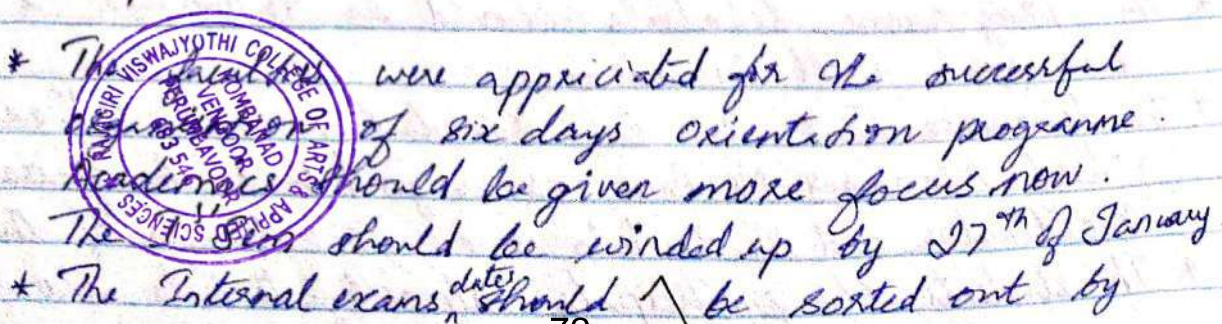 * The faculties were appriciated for the successful
organization of six days orientation programme.
Academics should be given more focus now.
The Sem should be winded up by 27th of January
* The Internal exams dates should be sorted out by
RAJAGIRI VISWAJYOTHI COLLEGE OF ARTS & APPLIED SCIENCES
VENGOOR
PERUMBAVOOR
78